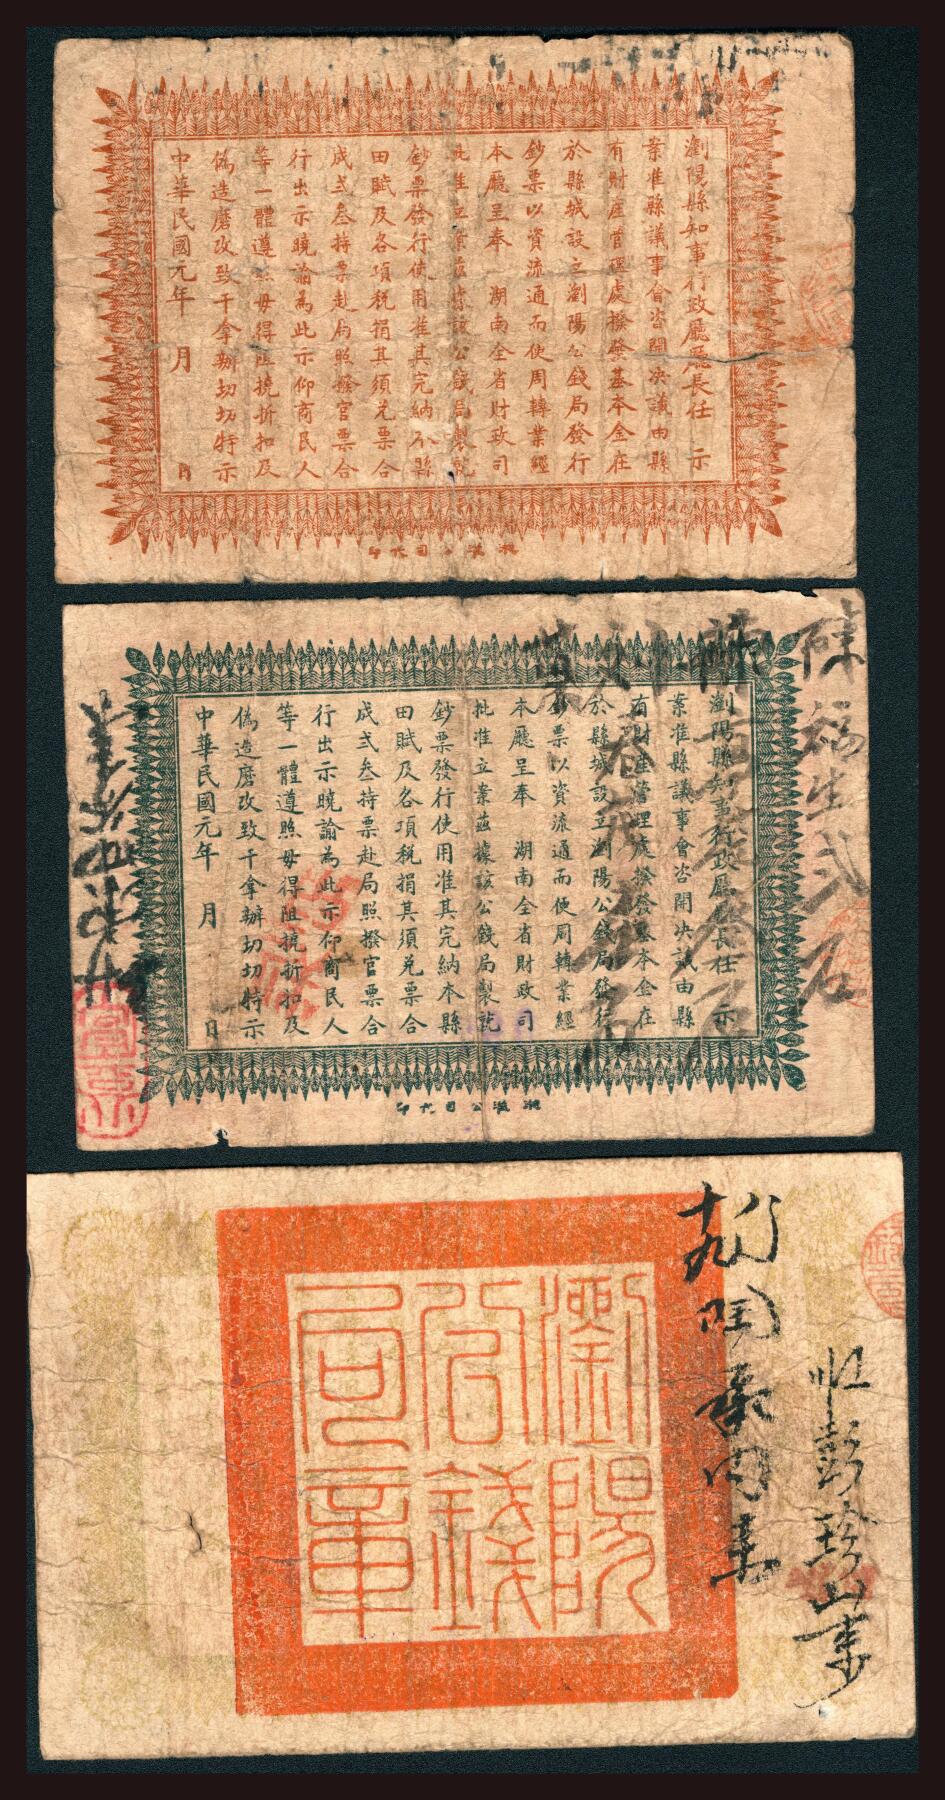 瀏陽縣知事行政廳廳長任　示
案准縣議事會咨開決議由縣
有財産管理處撥發基本金在
於縣城設立瀏陽公錢局發行
鈔票以資流通而便周轉業經
本廳呈奉　湖南全省財政司
批准立業茲據該公錢局製就
鈔票發行使用准其完納本縣
田賦及各項稅捐其須兑票合
成弍叁持票赴局照撥官票合
行出示曉諭為此示仰商民人
等一體遵照毋得阻撓折扣及
偽造磨改致干拿辦切切特示
中華民國元年　月　日
瀏陽縣知事行政廳廳長任　示
案准縣議事會咨開決議由縣
有財産管理處撥發基本金在
於縣城設立瀏陽公錢局發行
鈔票以資流通而便周轉業經
本廳呈奉　湖南全省財政司
批准立業茲據該公錢局製就
鈔票發行使用准其完納本縣
田賦及各項稅捐其須兑票合
成弍叁持票赴局照撥官票合
行出示曉諭為此示仰商民人
等一體遵照毋得阻撓折扣及
偽造磨改致干拿辦切切特示
中華民國元年　月　日
瀏陽
公錢
局章